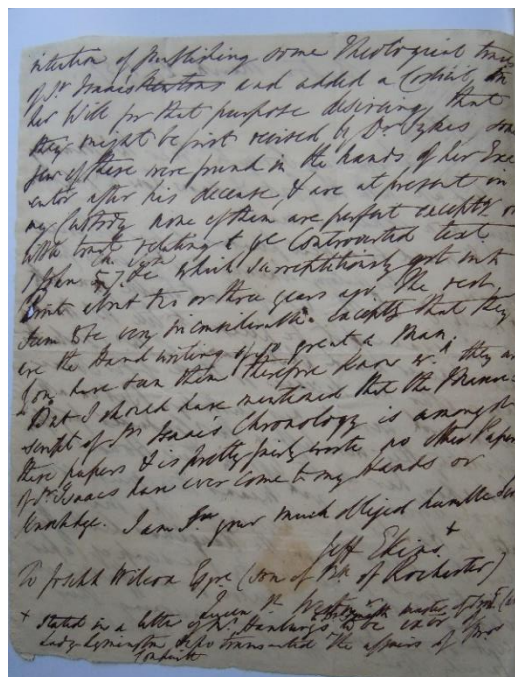 intention of publishing some Theological tracts
of Sr Isaac Newtons and added a Codicil to
her Will for that purpose desiring that
they might be first revised by Dr Sykes some
few of these were found in the hands of her Exe
cutor after his decease, & are at present in
my Custody none of them are perfect except a
little tract relating to ye controverted text
1 John 5. 7. &c which surreptitiously got into
print about two or three years ago. The rest
seem to be very inconsiderable excepts that they
are the Hand writing of so great a Man,
You have seen them therefore know wt they are
But I should have mentioned that the Manu-
script of Sr Isaacs Chronology is amongst
these papers & is pretty fairly wrote no other Papers
of Sr Isaacs have ever come to my hands or
knowledge. I am Sr your much obliged humble Ser
Jeff Ekins +
To Joseph Wilcox Esqre (Son of Bp of Rochester)
+ Stated in a letter of Mr Hanbury's to be exor of
Lady Lymington & so transacted the affairs of Mrs
Conduitt